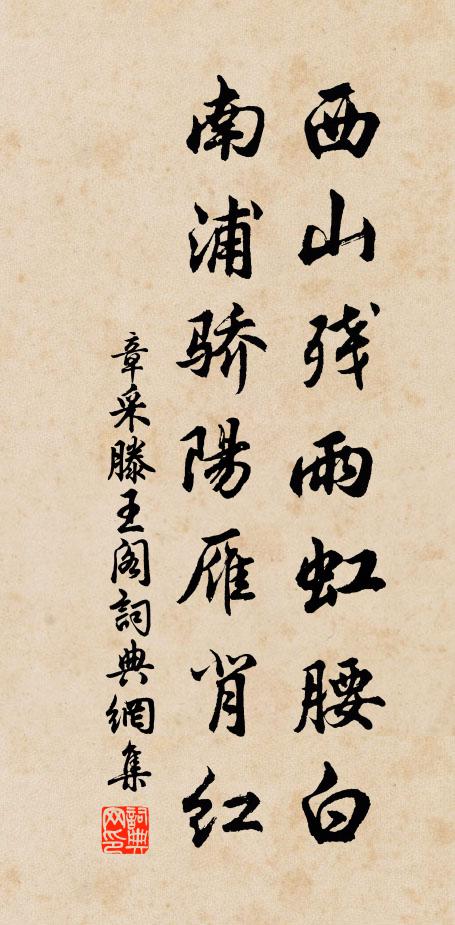 西山残雨虹腰白
南浦骄陽雁背红
章采滕王阁詞典網集
詞典
网印